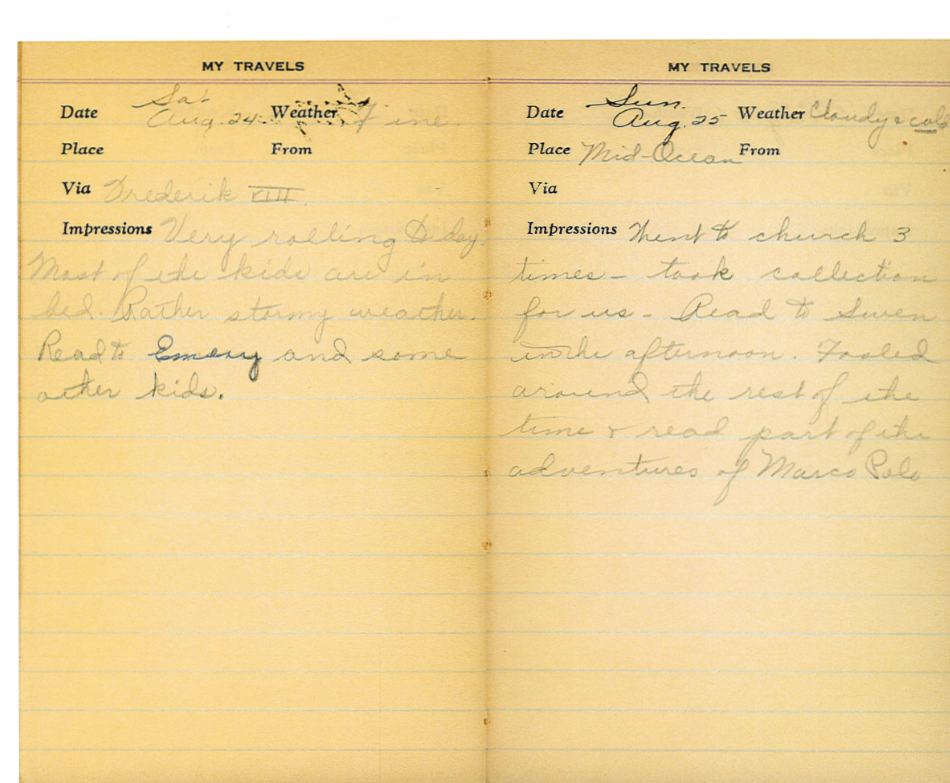 MY TRAVELS
Sat
Date Aug. 24. Weather Fine
Place From
Via Frederik VIII.
Impressions Very rolling to day.
Most of the kids are in
bed. Rather stormy weather.
Read to Emery and some
other kids.
MY TRAVELS
Sun.
Date Aug. 25 Weather Cloudy & cold
Place Mid-Ocean From
Via
Impressions Went to church 3
times – took collection
for us – Read to Swen
in the afternoon. Fooled
around the rest of the
time & read part of the
adventures of Marco Polo